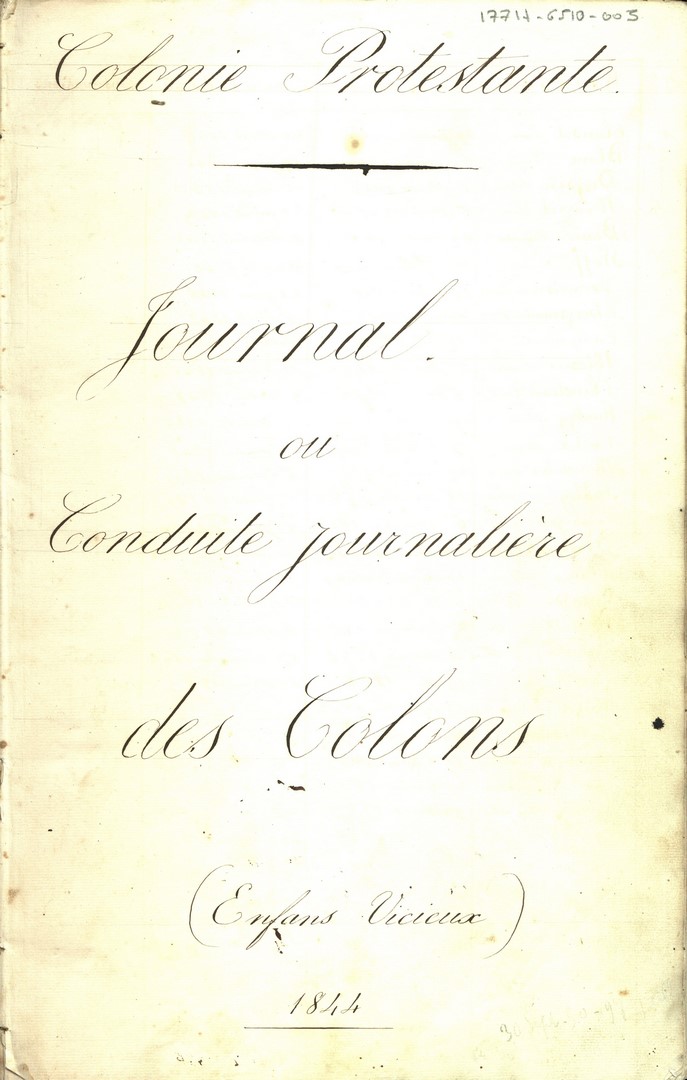 17714-6510-003
Colonie Protestante.
Journal.
ou
Conduite journalière
des Colons
(Enfans Vicieux)
1844